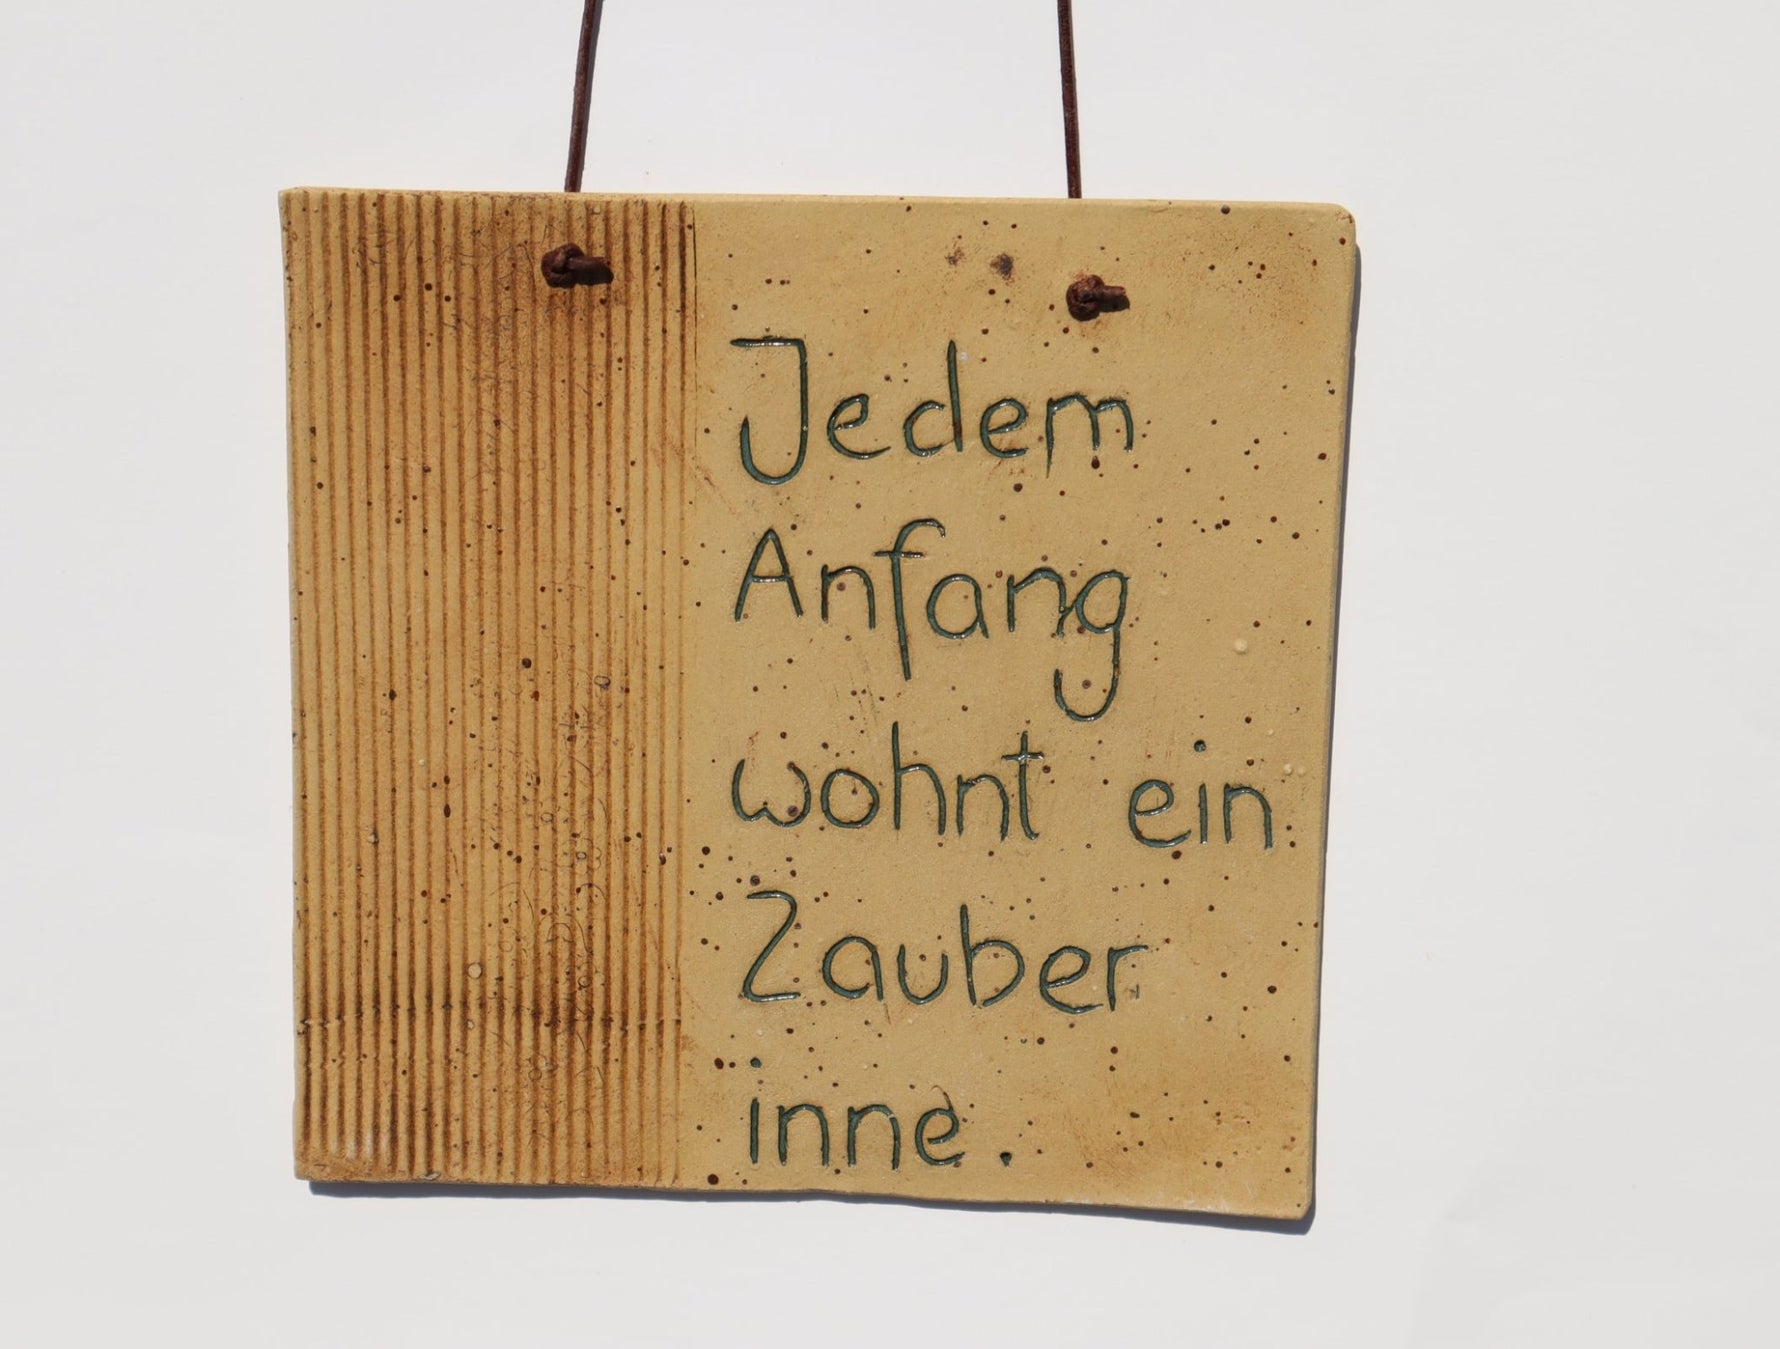 Jedem
Anfang
wohnt ein
Zauber
inne.